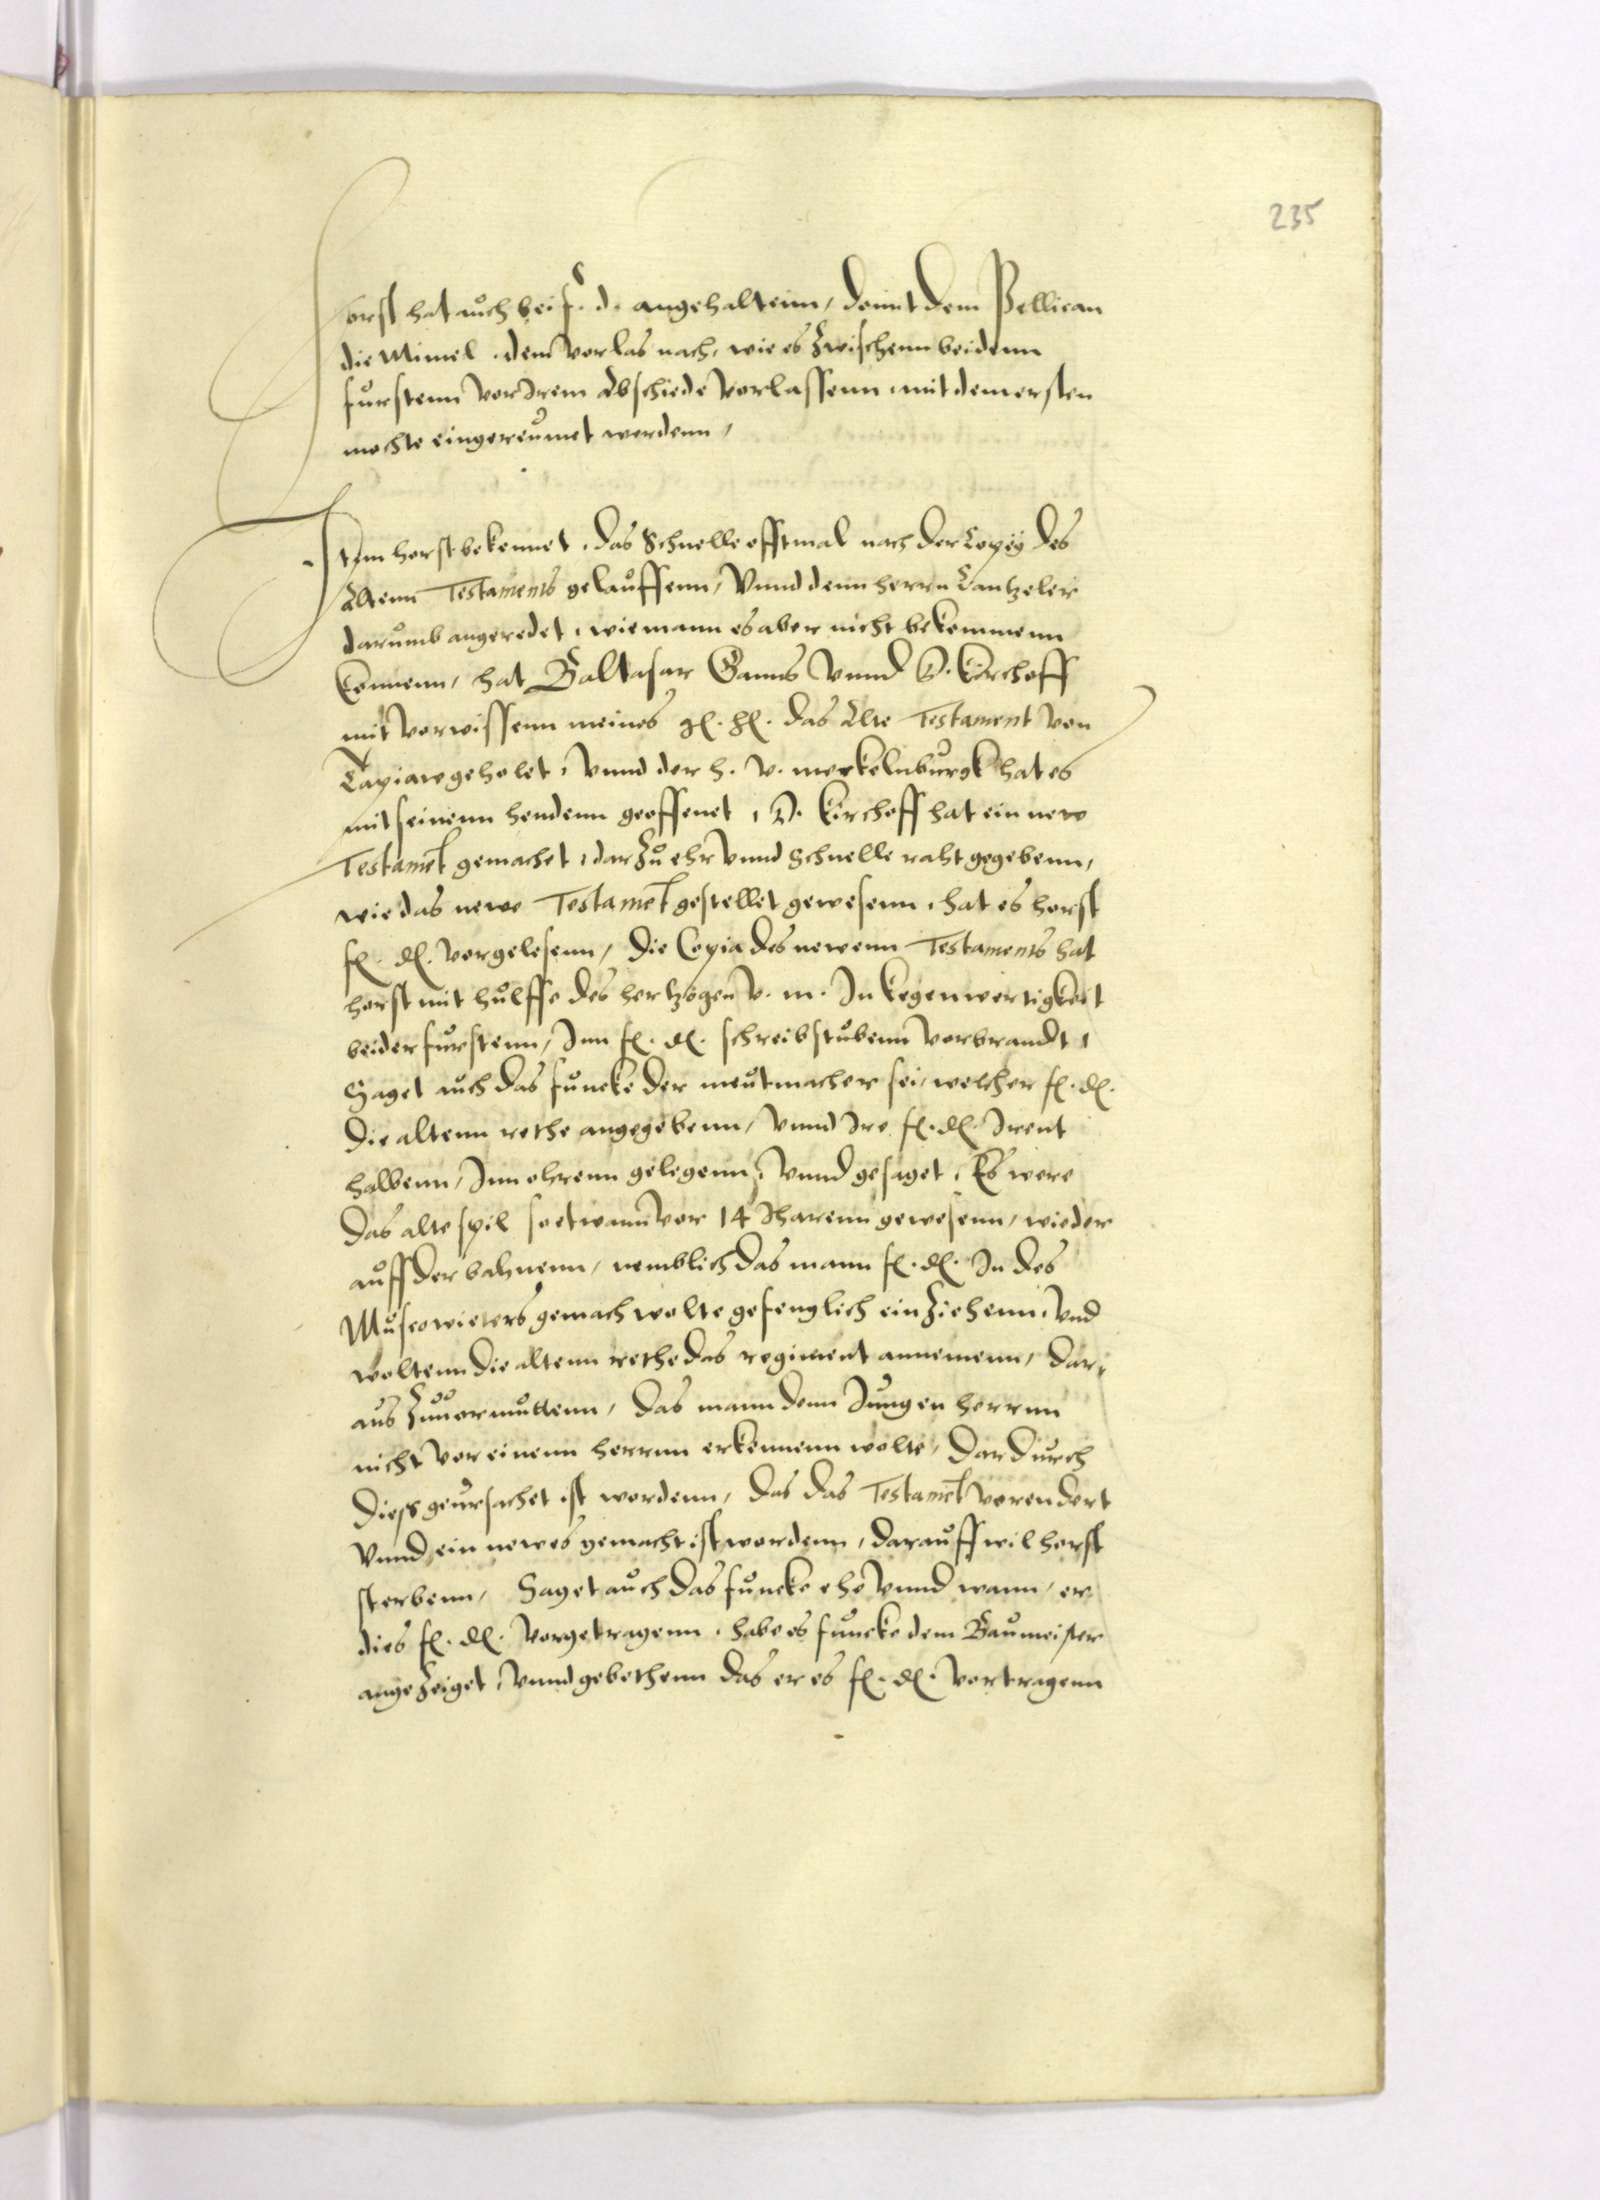 235
Horst hat auch bei f. d. angehaltenn, domit dem Pellican
die Mimel, dem vorlas nach, wie es zwischenn beidenn
furstenn vor irem Abschiede vorlassenn, mit dem ersten
mochte eingereumet werdenn,
Item horst bekennet, das Schnelle offtmal nach der Copey des
Altenn Testaments gelauffenn, Vnnd denn herrn Cantzeler
darumb angeredet, wie mann es aber nicht bekommenn
konnenn, hat Baltasar Ganns Vnnd D. Kirchoff
mit vorwissenn meines g. h. das Alte Testament von
Tapiaw geholet, Vnnd der h. v. meckelnburgk hat es
mit seinenn hendenn geoffenet, D. Kirchoff hat ein new
Testament gemachet, darzu ehr Vnnd Schnelle raht gegebenn,
wie das newe Testament gestellet gewesenn, hat es horst
f. d. vorgelesenn, Die Copia des newenn Testaments hat
horst mit hulffe des hertzogen v. m. In kegenwertigkeit
beider furstenn, Inn f. d. schreibstubenn vorbrandt,
Saget auch das funcke der meutmacher sei, welcher f. d.
Die altenn rethe angegebenn, Vnnd Ire f. d. Irent
halbenn, Inn ohrenn gelegenn, Vnnd gesaget, Es were
Das alte spil so etwann vor 14 Iharenn gewesenn, wieder
auff der bahnenn, nemblich das mann f. d. In des
Muscowieters gemach wolte gefenglich einziehenn, Vnd
woltenn die altenn rethe das regiment annemenn, dar,
aus zuuormuttenn, Das mann denn Jungen herrnn
nicht vor einenn herrnn erkennenn wolte, Dardurch
Diess geursachet ist wordenn, Das das Testament vorendert
Vnnd ein newes gemacht ist wordenn, darauff wil horst
sterbenn, Saget auch das funcke ehe Vnnd wann, er
dies f. d. vorgetragenn, habe es funcke dem Baumeister
angezeiget, Vnnd gebethenn das er es f. d. vortragenn